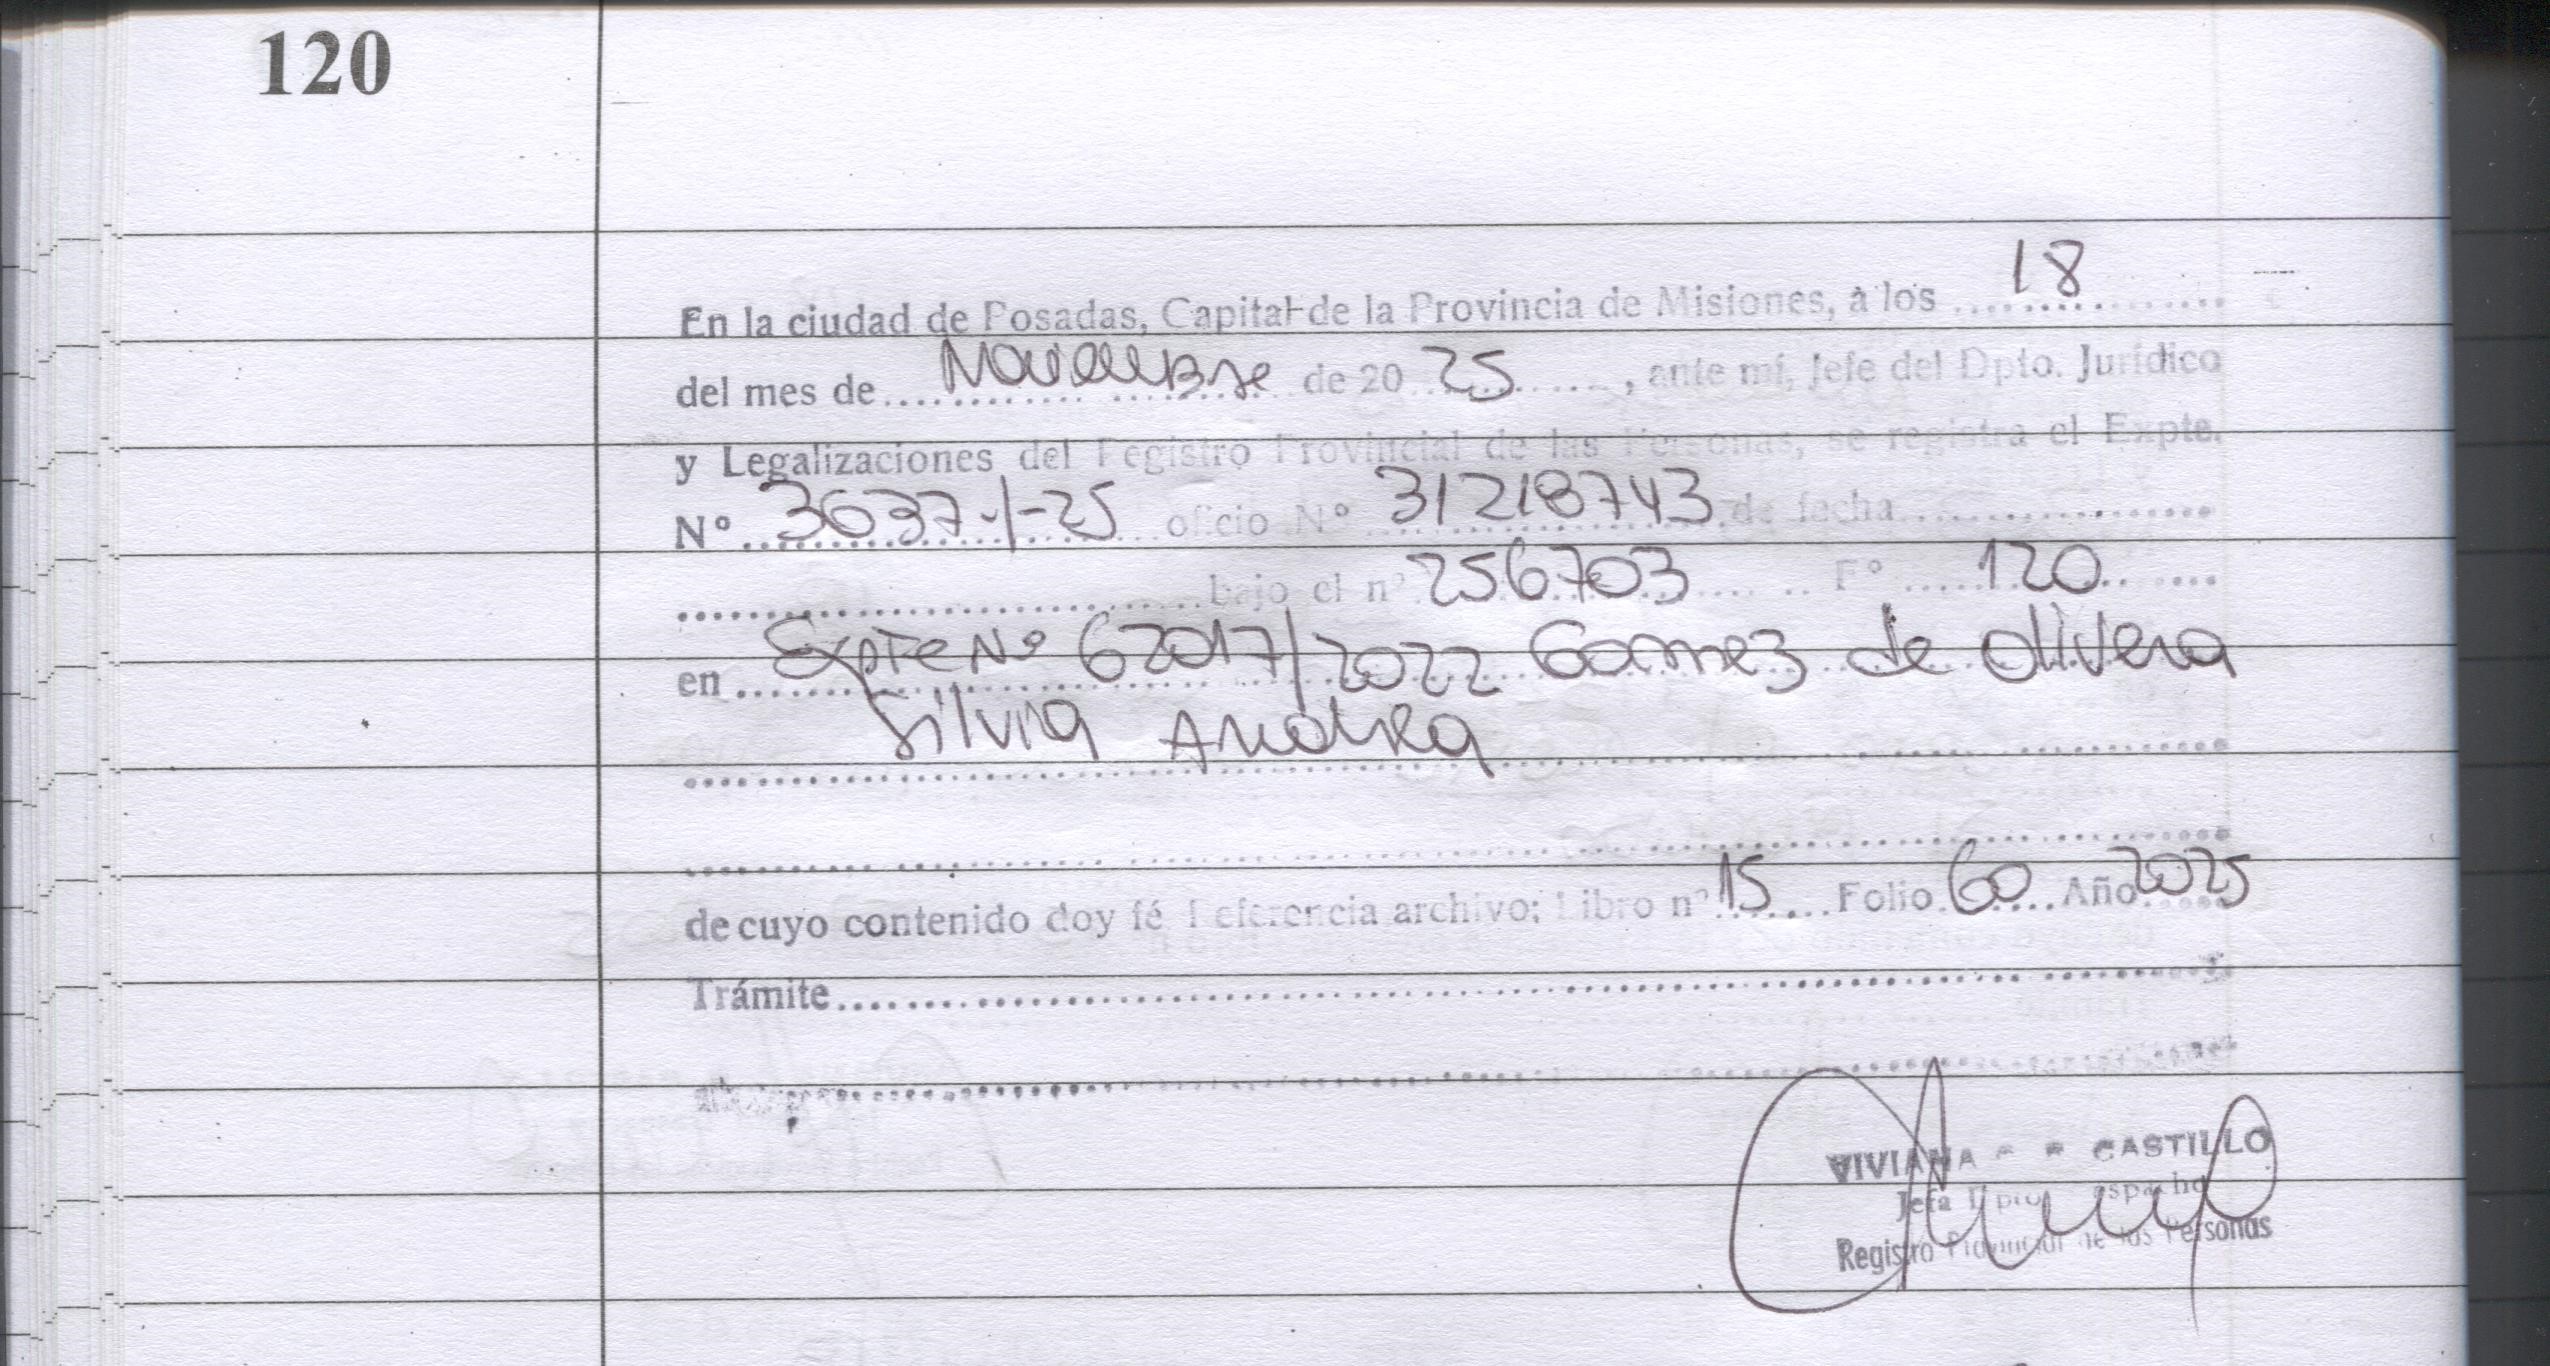 120
En la ciudad de Posadas, Capital de la Provincia de Misiones, a los 18
del mes de Noviembre de 20 25, ante mí, Jefe del Dpto. Jurídico
y Legalizaciones del Registro Provincial de las Personas, se registra el Expte.
Nº 3637-/-25 oficio Nº 31218743 de fecha
bajo el nº 256703 Fº 120
en Expte Nº 62017/2022 Gomez de Olivera
Silvia Andrea
de cuyo contenido doy fé Referencia archivo; Libro nº 15 Folio 60 Año 2025
Trámite
VIVIANA CASTILLO
Jefa Dpto. Despacho
Registro Provincial de las Personas